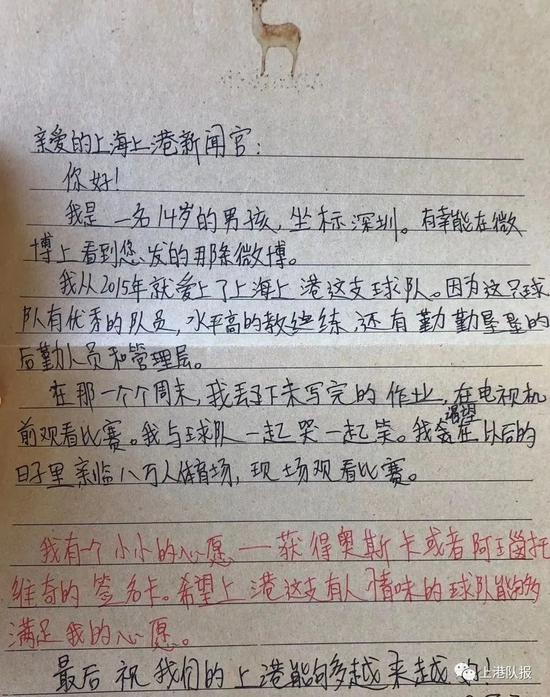 亲爱的上海上港新闻官：
你好！
我是一名14岁的男孩，坐标深圳。有幸能在微
博上看到您发的那条微博。
我从2015年就爱上了上海上港这支球队。因为这只球
队有优秀的队员，水平高的教练，还有勤勤恳恳的
后勤人员和管理层。
在那一个个周末，我丢下未写完的作业，在电视机
渴望
前观看比赛。我与球队一起哭一起笑。我在以后的
日子里亲临八万人体育场，现场观看比赛。
我有个小小的心愿——获得奥斯卡或者阿瑙托
维奇的签名卡。希望上港这支有人情味的球队能够
满足我的心愿。
最后祝我们的上港能够越来越
上港队报